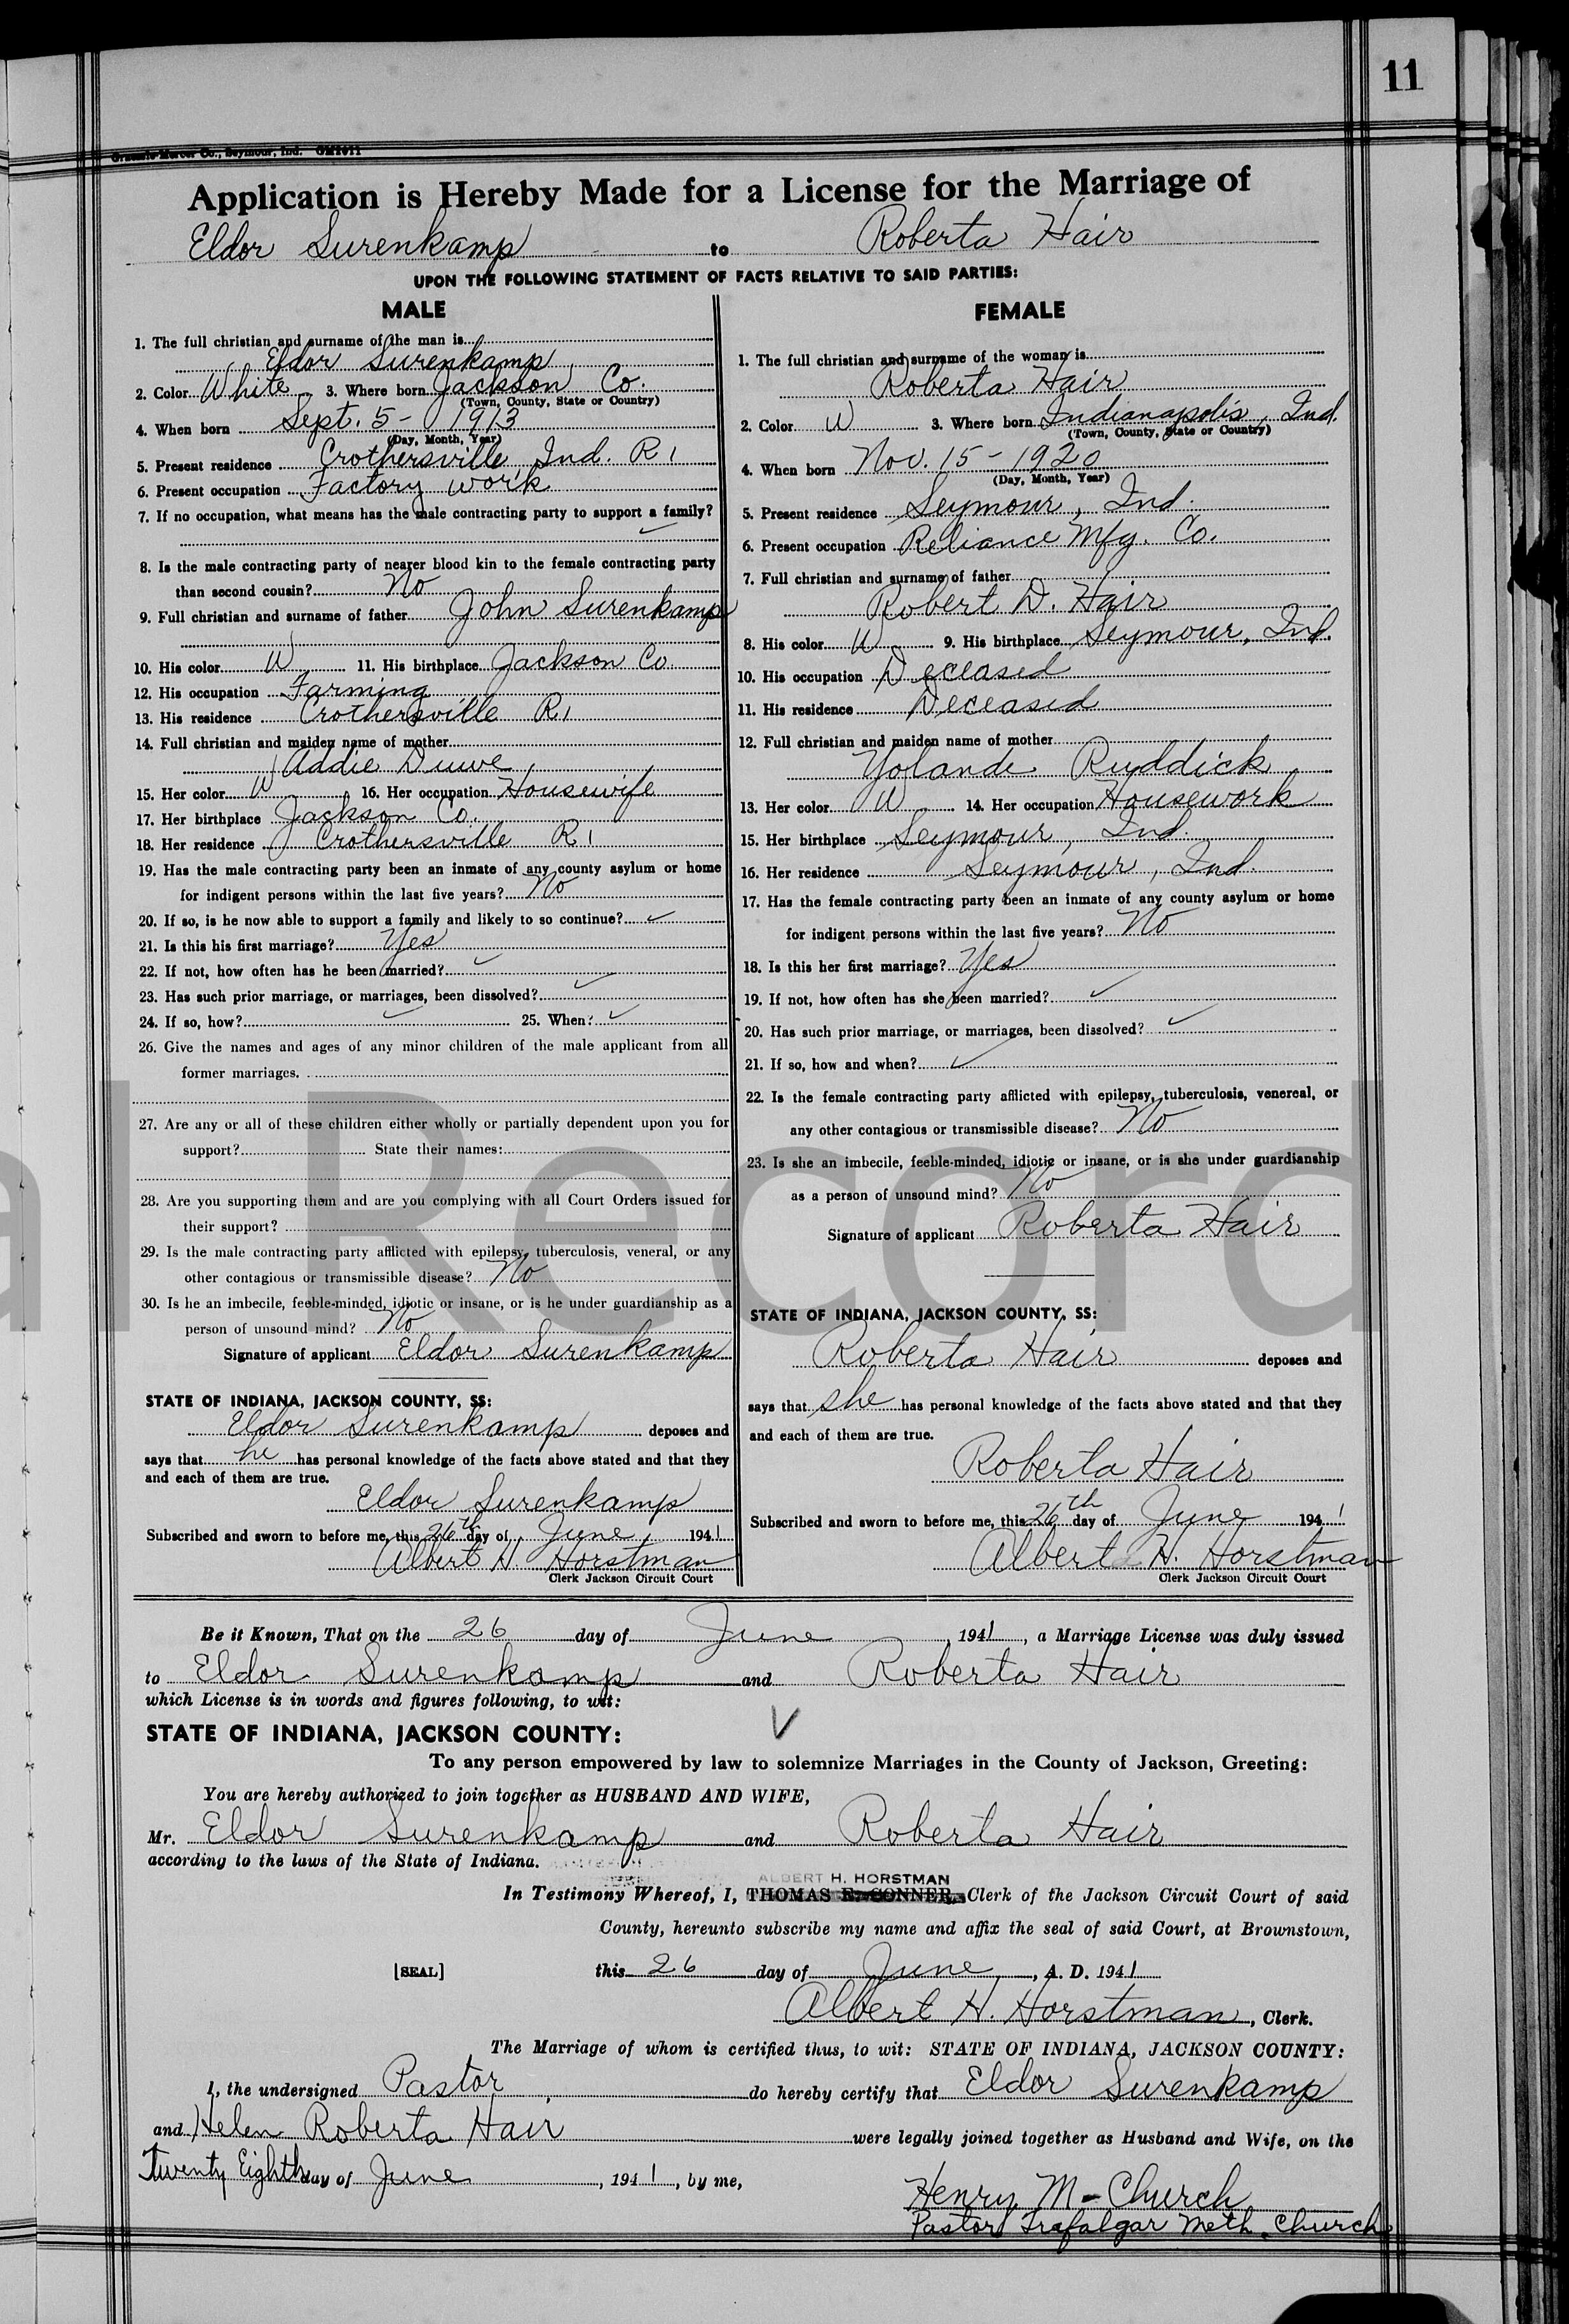 11
Graessle-Mercer Co., Seymour, Ind. GM2011
Application is Hereby Made for a License for the Marriage of
Eldor Surenkamp to Roberta Hair
UPON THE FOLLOWING STATEMENT OF FACTS RELATIVE TO SAID PARTIES:
MALE
1. The full christian and surname of the man is
Eldor Surenkamp
2. Color White 3. Where born Jackson Co.
(Town, County, State or Country)
4. When born Sept. 5 - 1913
(Day, Month, Year)
5. Present residence Crothersville, Ind. R 1
6. Present occupation Factory work
7. If no occupation, what means has the male contracting party to support a family?
✓
8. Is the male contracting party of nearer blood kin to the female contracting party
than second cousin? No
9. Full christian and surname of father John Surenkamp
10. His color W 11. His birthplace Jackson Co.
12. His occupation Farming
13. His residence Crothersville R1
14. Full christian and maiden name of mother
Addie Duwe
15. Her color W 16. Her occupation Housewife
17. Her birthplace Jackson Co.
18. Her residence Crothersville R 1
19. Has the male contracting party been an inmate of any county asylum or home
for indigent persons within the last five years? No
20. If so, is he now able to support a family and likely to so continue? ✓
21. Is this his first marriage? Yes
22. If not, how often has he been married? ✓
23. Has such prior marriage, or marriages, been dissolved? ✓
24. If so, how? ✓ 25. When? ✓
26. Give the names and ages of any minor children of the male applicant from all
former marriages.
27. Are any or all of these children either wholly or partially dependent upon you for
support? State their names:
28. Are you supporting them and are you complying with all Court Orders issued for
their support?
29. Is the male contracting party afflicted with epilepsy, tuberculosis, veneral, or any
other contagious or transmissible disease? No
30. Is he an imbecile, feeble-minded, idiotic or insane, or is he under guardianship as a
person of unsound mind? No
Signature of applicant Eldor Surenkamp
STATE OF INDIANA, JACKSON COUNTY, SS:
Eldor Surenkamp deposes and
says that he has personal knowledge of the facts above stated and that they
and each of them are true.
Eldor Surenkamp
Subscribed and sworn to before me, this 26th day of June, 1941
Albert H. Horstman
Clerk Jackson Circuit Court
FEMALE
1. The full christian and surname of the woman is
Roberta Hair
2. Color W 3. Where born Indianapolis, Ind.
(Town, County, State or Country)
4. When born Nov. 15 - 1920
(Day, Month, Year)
5. Present residence Seymour, Ind.
6. Present occupation Reliance Mfg. Co.
7. Full christian and surname of father
Robert D. Hair
8. His color W 9. His birthplace Seymour, Ind.
10. His occupation Deceased
11. His residence Deceased
12. Full christian and maiden name of mother
Yolande Ruddick
13. Her color W 14. Her occupation Housework
15. Her birthplace Seymour, Ind.
16. Her residence Seymour, Ind.
17. Has the female contracting party been an inmate of any county asylum or home
for indigent persons within the last five years? No
18. Is this her first marriage? Yes
19. If not, how often has she been married? ✓
20. Has such prior marriage, or marriages, been dissolved? ✓
21. If so, how and when? ✓
22. Is the female contracting party afflicted with epilepsy, tuberculosis, venereal, or
any other contagious or transmissible disease? No
23. Is she an imbecile, feeble-minded, idiotic or insane, or is she under guardianship
as a person of unsound mind? No
Signature of applicant Roberta Hair
STATE OF INDIANA, JACKSON COUNTY, SS:
Roberta Hair deposes and
says that she has personal knowledge of the facts above stated and that they
and each of them are true.
Roberta Hair
Subscribed and sworn to before me, this 26th day of June 1941
Albert H. Horstman
Clerk Jackson Circuit Court
al Record
Be it Known, That on the 26 day of June, 1941, a Marriage License was duly issued
to Eldor Surenkamp and Roberta Hair
which License is in words and figures following, to wit:
STATE OF INDIANA, JACKSON COUNTY: ✓
To any person empowered by law to solemnize Marriages in the County of Jackson, Greeting:
You are hereby authorized to join together as HUSBAND AND WIFE,
Mr. Eldor Surenkamp and Roberta Hair
according to the laws of the State of Indiana.
ALBERT H. HORSTMAN
In Testimony Whereof, I, THOMAS E. CONNER, Clerk of the Jackson Circuit Court of said
County, hereunto subscribe my name and affix the seal of said Court, at Brownstown,
[SEAL] this 26 day of June, A. D. 1941
Albert H. Horstman, Clerk.
The Marriage of whom is certified thus, to wit: STATE OF INDIANA, JACKSON COUNTY:
I, the undersigned Pastor do hereby certify that Eldor Surenkamp
and Helen Roberta Hair were legally joined together as Husband and Wife, on the
Twenty Eighth day of June, 1941, by me,
Henry M - Church
Pastor Trafalgar Meth. Church